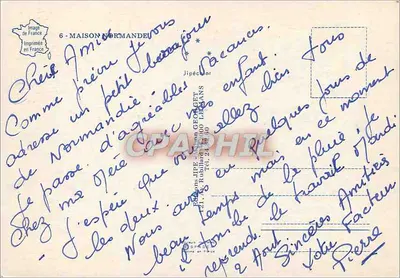 Image
de France
Imprimée
en France
6 - MAISON NORMANDE
Chers Amis
Comme prévu je vous
adresse un petit bonjour
de Normandie.
Je passe d'agréables Vacances.
Chez ma mère avec les enfants.
J'espère que vous allez bien tous
les deux.
Nous avons eu quelques jours de
beau temps mais en ce moment
il tombe de la pluie, je
reprends le travail
2 Aout. Sincères Amitiés
Votre Facteur
Pierre
Jipécolor
Editions JIPE
LE MANS
CPARAMA